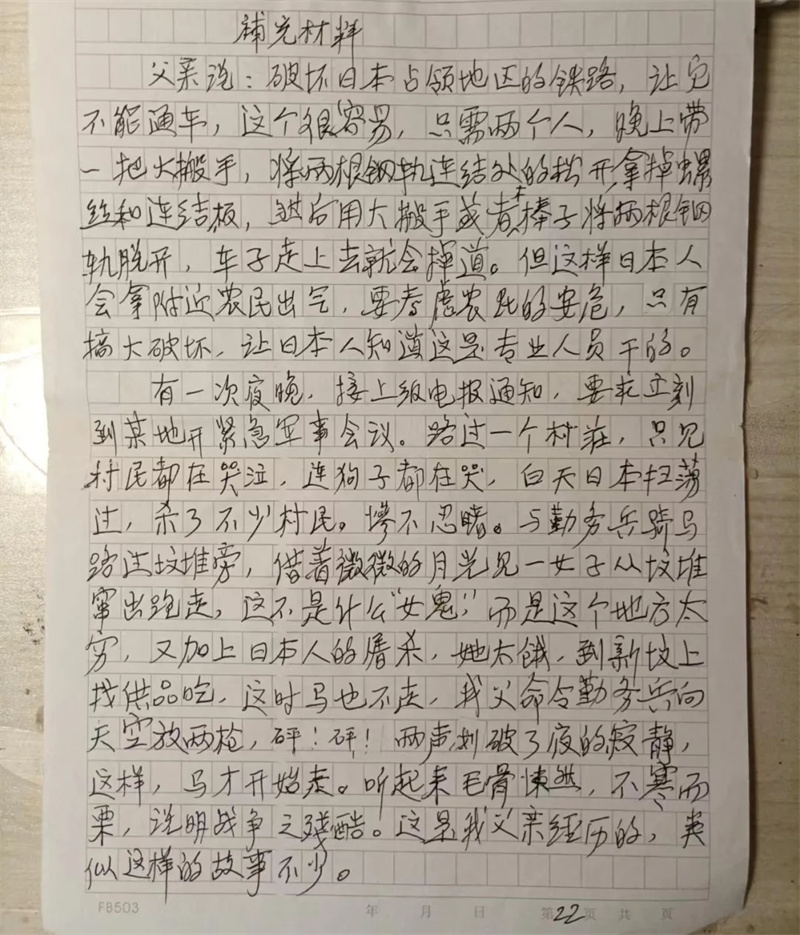 補充材料
父亲说：破坏日本占领地区的铁路，让它
不能通车，这个很容易，只需两个人，晚上带
一把大搬手，将两根钢轨连结处的松开，拿掉螺
丝和连结板，然后用大搬手或者木棒子将两根钢
轨脱开，车子走上去就会掉道。但这样日本人
会拿附近农民出气，要考虑农民的安危，只有
搞大破坏，让日本人知道这是专业人员干的。
有一次夜晚，接上级电报通知，要求立刻
到某地开紧急军事会议。路过一个村庄，只见
村民都在哭泣，连狗子都在哭，白天日本扫荡
过，杀了不少村民。惨不忍睹。与勤务兵骑马
路过坟堆旁，借着微微的月光见一女子从坟堆
窜出跑走，这不是什么“女鬼，”而是这个地方太
穷，又加上日本人的屠杀，她太饿，到新坟上
找供品吃，这时马也不走，我父命令勤务兵向
天空放两枪，砰！砰！两声划破了夜的寂静，
这样，马才开始走。听起来毛骨悚然，不寒而
栗，说明战争之残酷。这是我父亲经历的，类
似这样的故事不少。
FB503 年 月 日 第22页 共 页